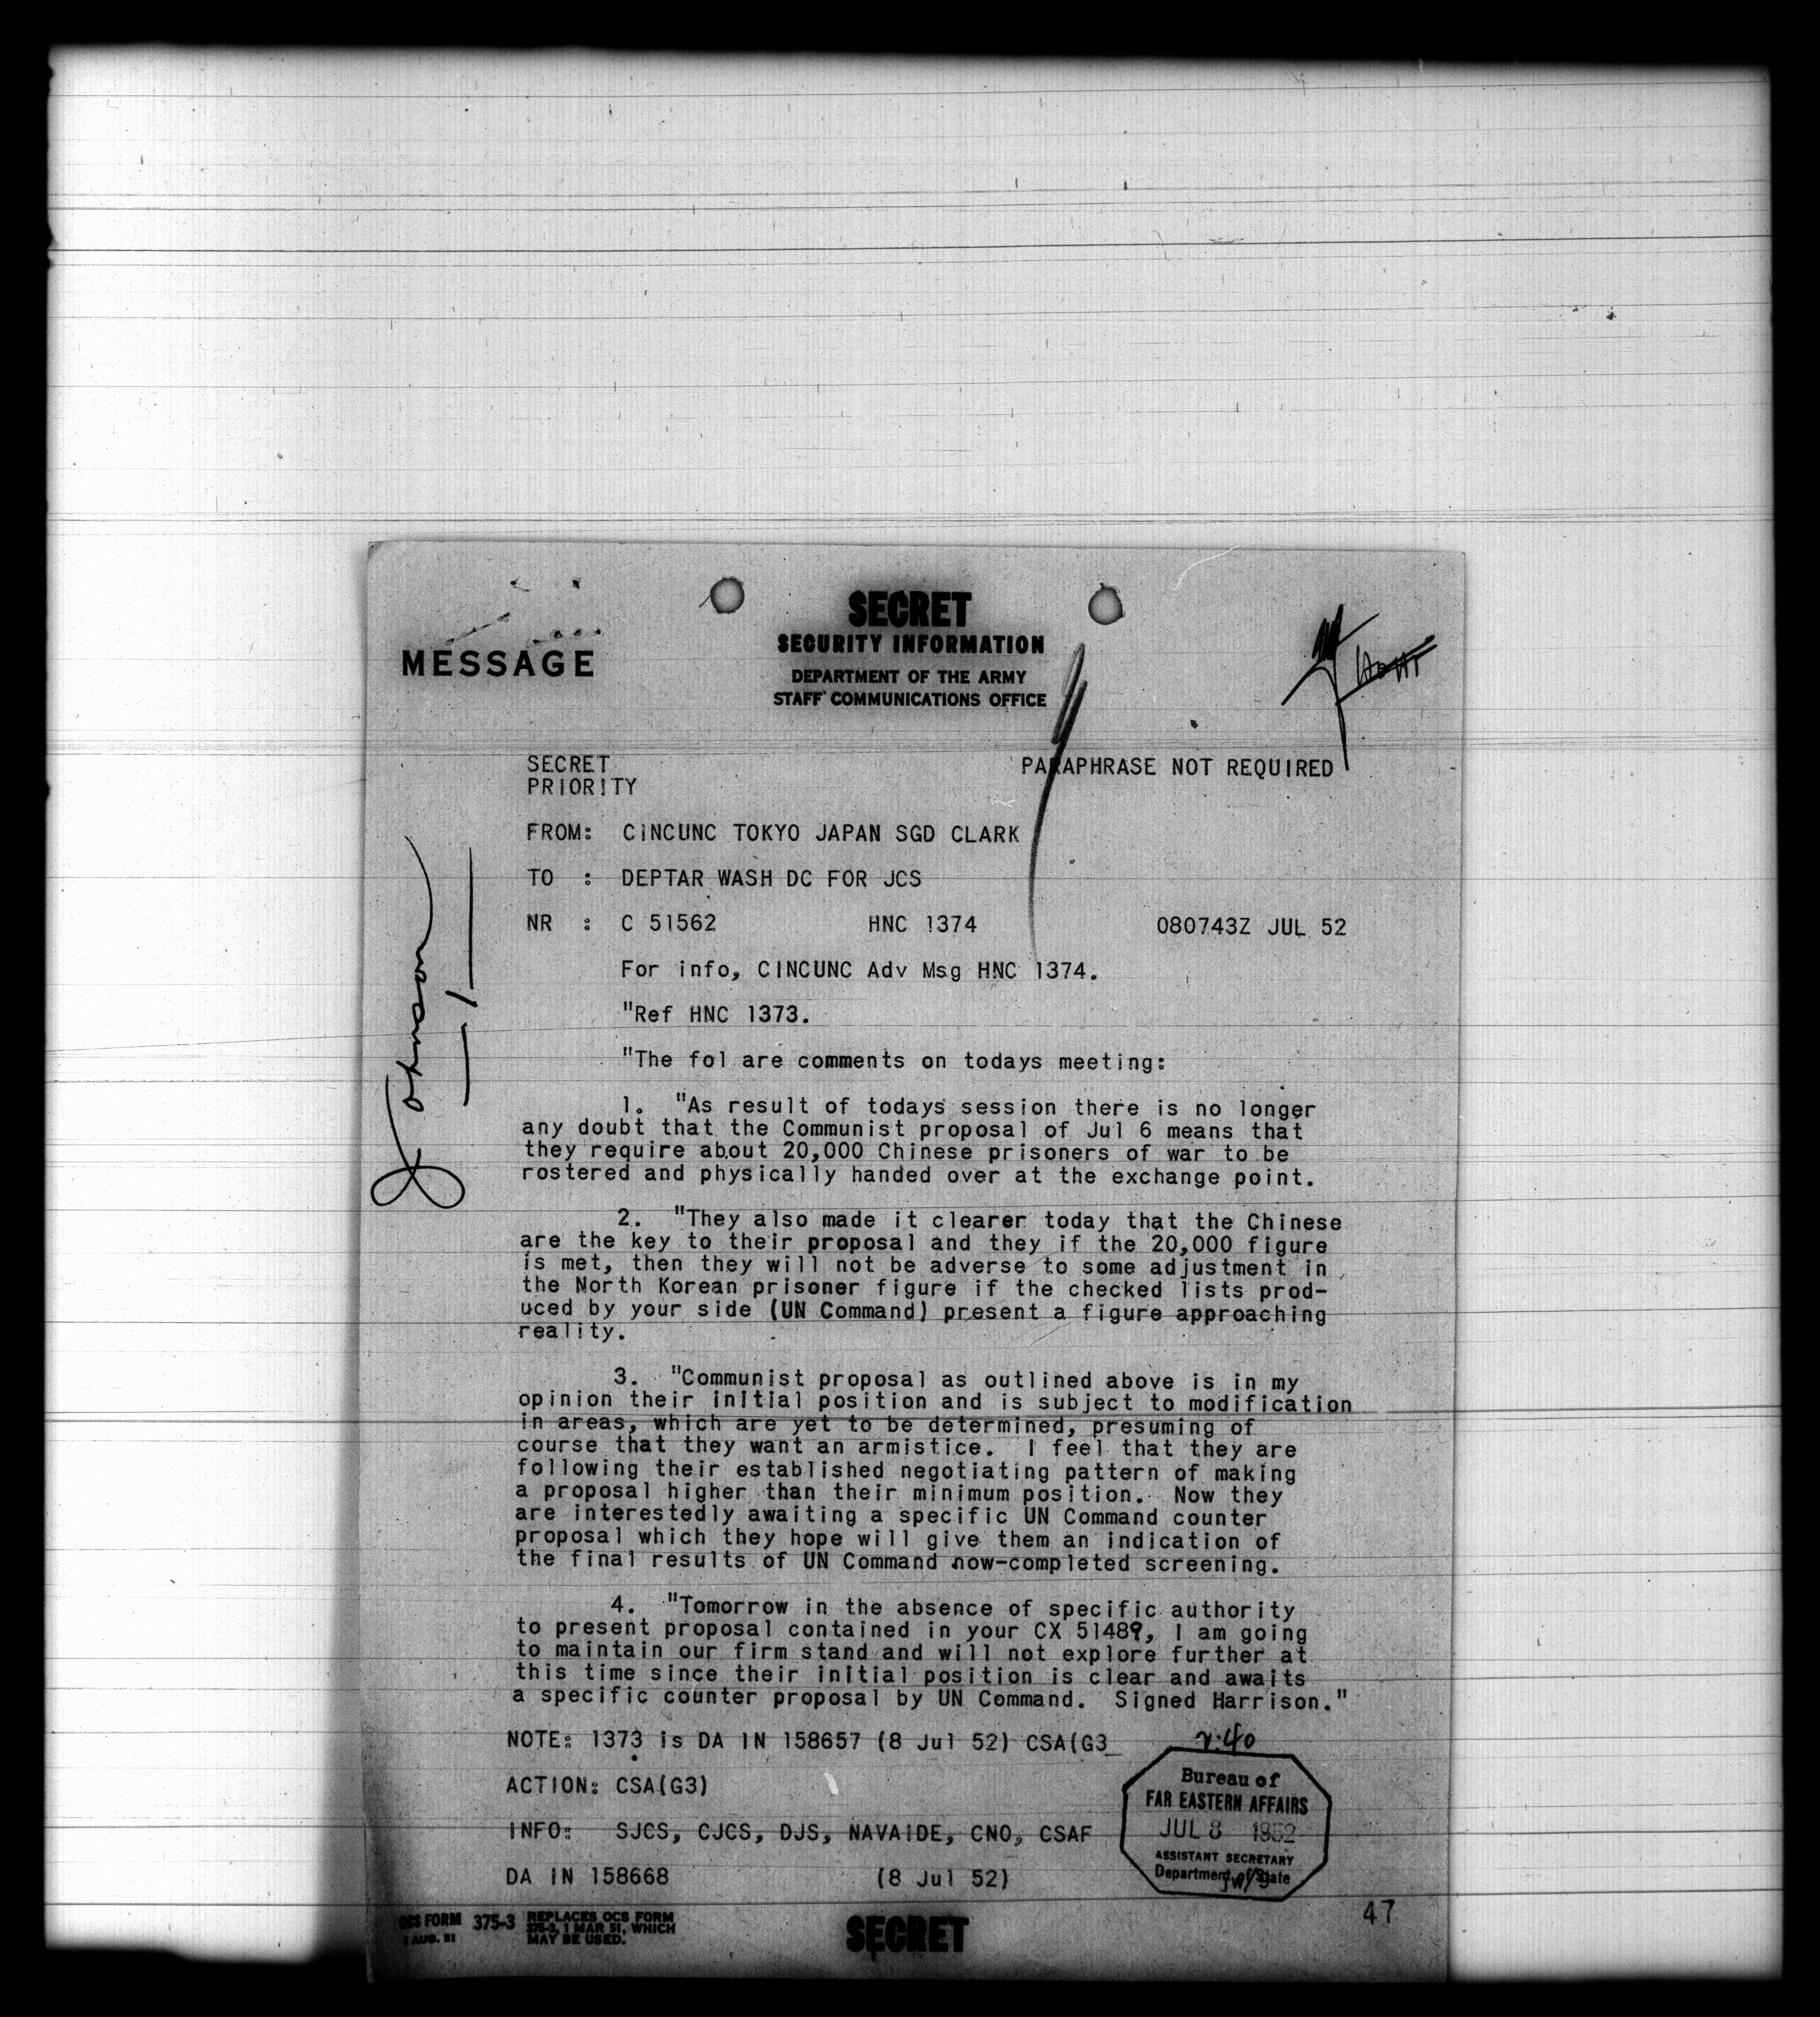 SECRET
SECURITY INFORMATION
MESSAGE
DEPARTMENT OF THE ARMY
STAFF COMMUNICATIONS OFFICE
SECRET
PARAPHRASE NOT REQUIRED
PRIORITY
FROM: CINCUNC TOKYO JAPAN SGD CLARK
TO : DEPTAR WASH DC FOR JCS
NR : C 51562 HNC 1374 080743Z JUL 52
For info, CINCUNC Adv Msg HNC 1374.
"Ref HNC 1373.
"The fol are comments on todays meeting:
1. "As result of todays session there is no longer
any doubt that the Communist proposal of Jul 6 means that
they require about 20,000 Chinese prisoners of war to be
rostered and physically handed over at the exchange point.
2. "They also made it clearer today that the Chinese
are the key to their proposal and they if the 20,000 figure
is met, then they will not be adverse to some adjustment in
the North Korean prisoner figure if the checked lists prod-
uced by your side (UN Command) present a figure approaching
reality.
3. "Communist proposal as outlined above is in my
opinion their initial position and is subject to modification
in areas, which are yet to be determined, presuming of
course that they want an armistice. I feel that they are
following their established negotiating pattern of making
a proposal higher than their minimum position. Now they
are interestedly awaiting a specific UN Command counter
proposal which they hope will give them an indication of
the final results of UN Command now-completed screening.
4. "Tomorrow in the absence of specific authority
to present proposal contained in your CX 51489, I am going
to maintain our firm stand and will not explore further at
this time since their initial position is clear and awaits
a specific counter proposal by UN Command. Signed Harrison."
NOTE: 1373 is DA IN 158657 (8 Jul 52) CSA(G3_
ACTION: CSA(G3)
INFO: SJCS, CJCS, DJS, NAVAIDE, CNO, CSAF
DA IN 158668 (8 Jul 52)
Johnson
2:40
Bureau of
FAR EASTERN AFFAIRS
JUL 8 1952
ASSISTANT SECRETARY
Department of State
47
OCS FORM 375-3 REPLACES OCS FORM
1 AUG. 51 375-3, 1 MAR 51, WHICH
MAY BE USED.
SECRET